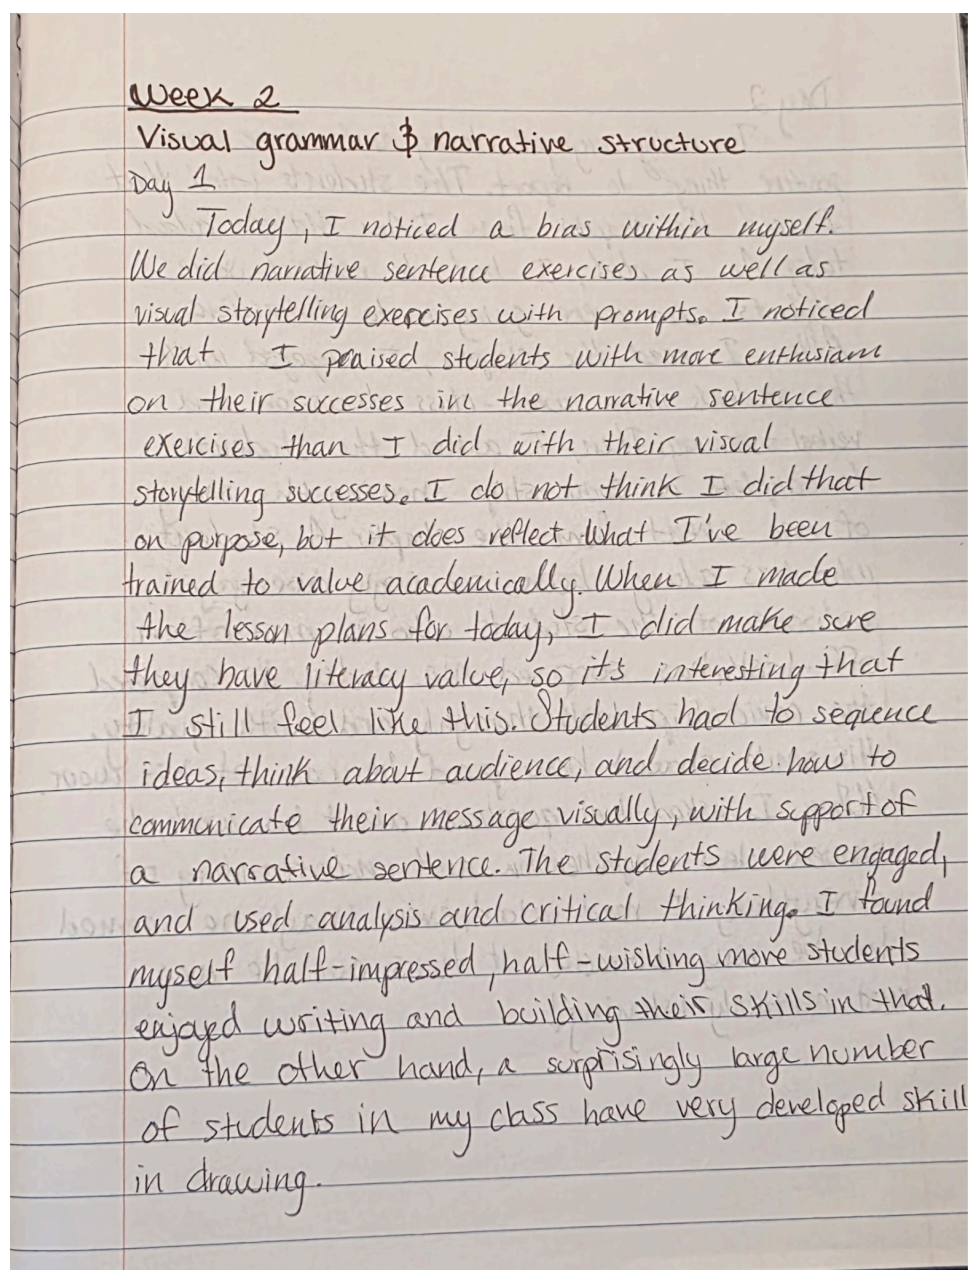 Week 2
Visual grammar & narrative structure
Day 1
Today, I noticed a bias within myself.
We did narrative sentence exercises as well as
visual storytelling exercises with prompts. I noticed
that I praised students with more enthusiasm
on their successes in the narrative sentence
exercises than I did with their visual
storytelling successes. I do not think I did that
on purpose, but it does reflect what I've been
trained to value academically. When I made
the lesson plans for today, I did make sure
they have literacy value, so it's interesting that
I still feel like this. Students had to seqience
ideas, think about audience, and decide how to
communicate their message visually, with support of
a narrative sentence. The students were engaged,
and used analysis and critical thinking. I found
myself half-impressed, half-wishing more students
enjoyed writing and building their skills in that.
On the other hand, a surprisingly large number
of students in my class have very developed skill
in drawing.